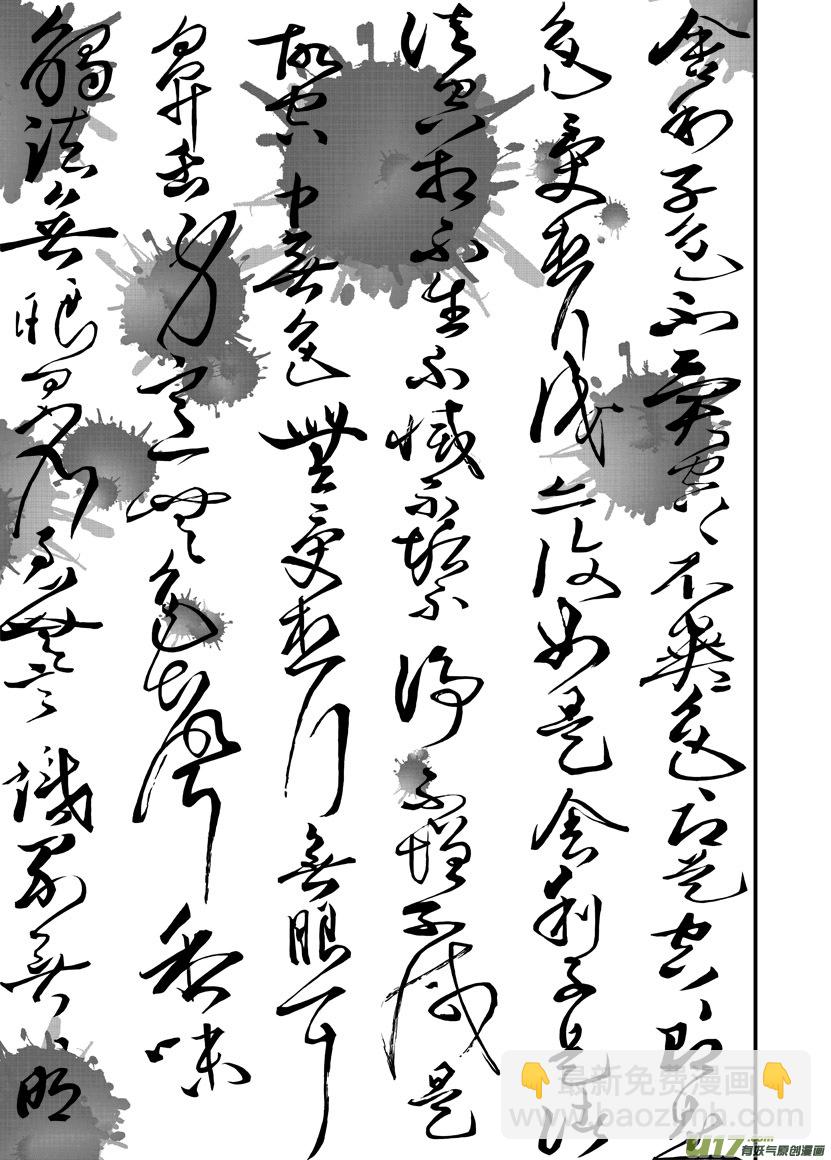 舍利子色不異空〻不異色〻即是空〻即是
色受想行識亦復如是舍利子是諸
法空相不生不滅不垢不淨不增不減是
故空中無色無受想行無眼耳
鼻舌身意無色聲香味
觸法無眼界乃至無意識界無〻明
👇最新免费漫画👇
www.baozimh.com
U17.com
有妖气原创漫画